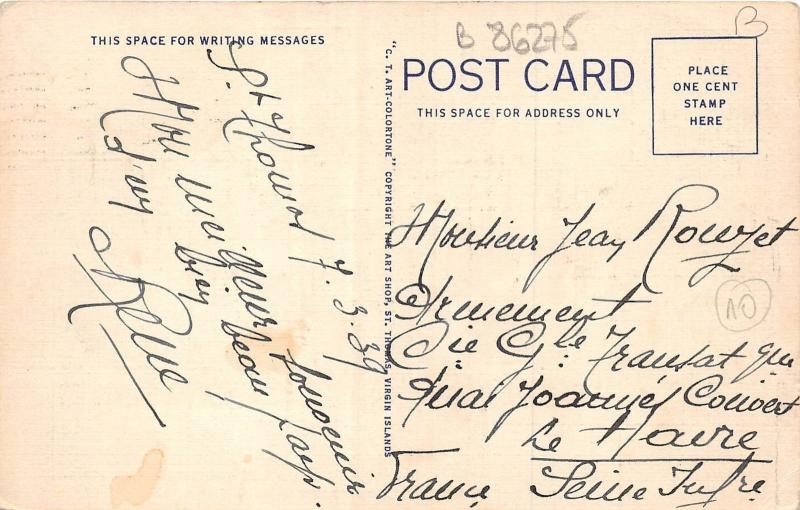 THIS SPACE FOR WRITING MESSAGES
St Thomas 7.3.39
Mon meilleur souvenir
d'un bien beau pays.
René
"C. T. ART-COLORTONE" COPYRIGHT THE ART SHOP, ST. THOMAS, VIRGIN ISLANDS
B 86275
B
POST CARD
THIS SPACE FOR ADDRESS ONLY
PLACE
ONE CENT
STAMP
HERE
Monsieur Jean Rouzet
Armement
Cie Gle Transat que
Quai Joannes Couvert
Le Havre
France Seine Infre